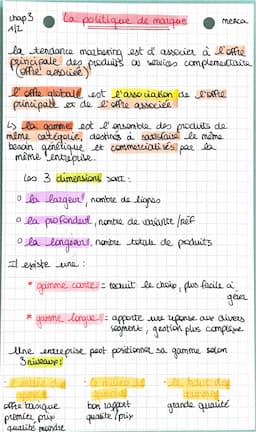 chap 3
1/2
la politique de marque
merca
la tendance marketing est d'associer à l'offre
principale des produits ou services complémentaires
(offre associée)
l'offre globale est l'association de l'offre
principale et de l'offre associée
↳ la gamme est l'ensemble des produits de
même catégorie, destinés à satisfaire le même
besoin générique et commercialisés par la
même entreprise.
les 3 dimensions sont :
la largeur, nombre de lignes
la profondeur, nombre de variante/réf
la longueur, nombre totale de produits
Il existe une :
* gamme courte : réduit le choix, plus facile à
gérer
* gamme longue : apporte une réponse aux divers
segments, gestion plus complexe
Une entreprise peut positionner sa gamme selon
3 niveaux :
offre basique
premier prix
qualité moindre
bon rapport
qualité/prix
grande qualité